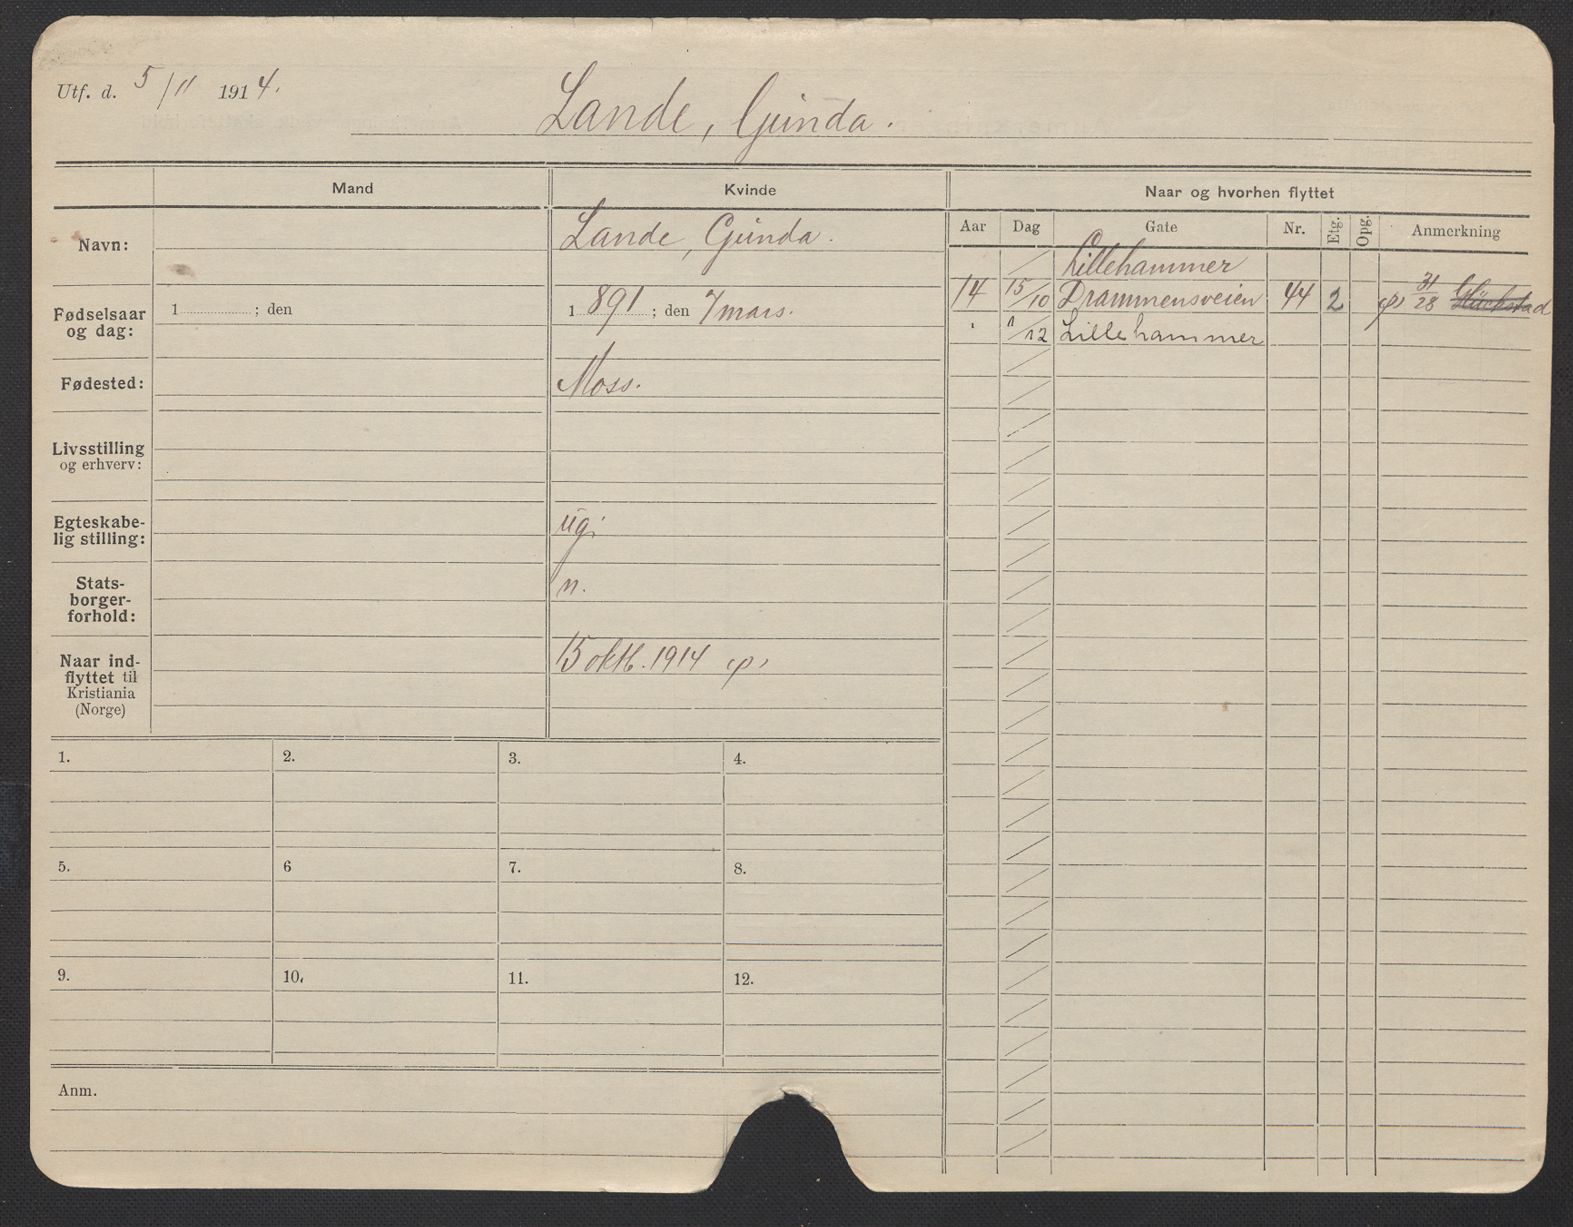 Utf. d. 5/11 1914.
Lande, Gunda.
Mand
Kvinde
Naar og hvorhen flyttet
Navn:
Lande, Gunda.
Aar Dag Gate Nr. Etg. Opg. Anmerkning
Lillehammer
14 15/10 Drammensveien 44 2 31/28
" 1/12 Lillehammer
Fødselsaar
og dag:
1 ; den
1891 ; den 7 mars.
Fødested:
Moss.
Livsstilling
og erhverv:
Egteskabe-
lig stilling:
ug.
Stats-
borger-
forhold:
n.
Naar ind-
flyttet til
Kristiania
(Norge)
15 oktb. 1914
1. 2. 3. 4.
5. 6 7. 8.
9. 10. 11. 12.
Anm.